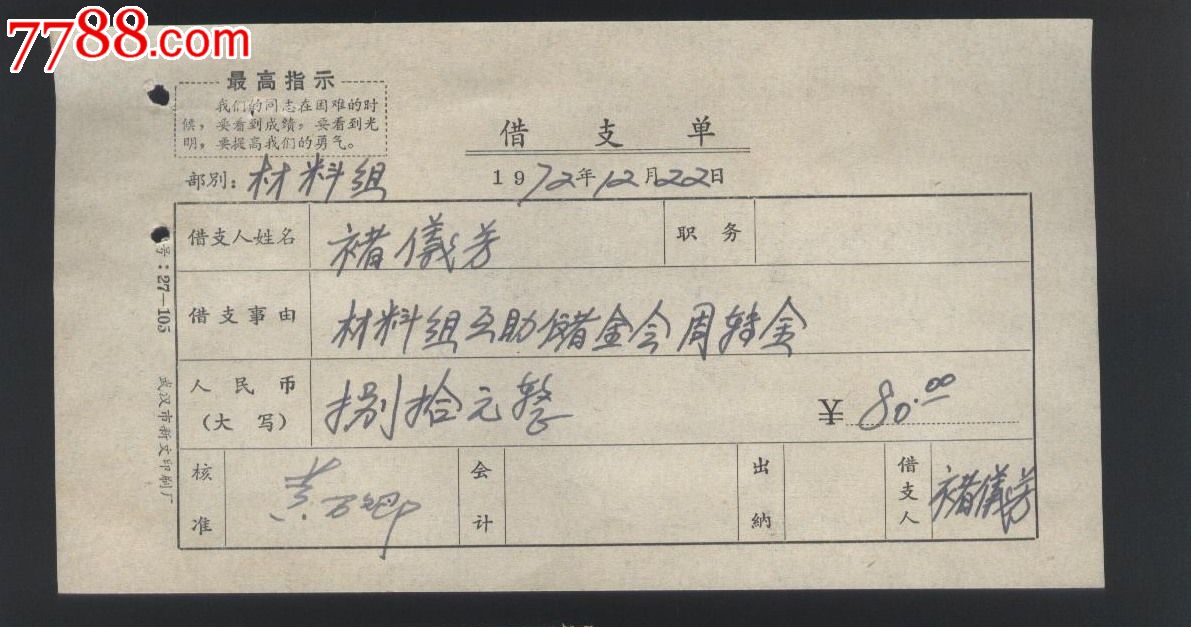 7788.com
最高指示
我们的同志在困难的时
候，要看到成绩，要看到光
明，要提高我们的勇气。
借支单
部别：材料组 1972年12月22日
借支人姓名 褚儀芳 职务
借支事由 材料组互助储金会周转金
人民币（大写） 捌拾元整 ¥80.00
核准 黄万卿 会计 出纳 借支人 褚儀芳
号：27—105 武汉市新文印刷厂